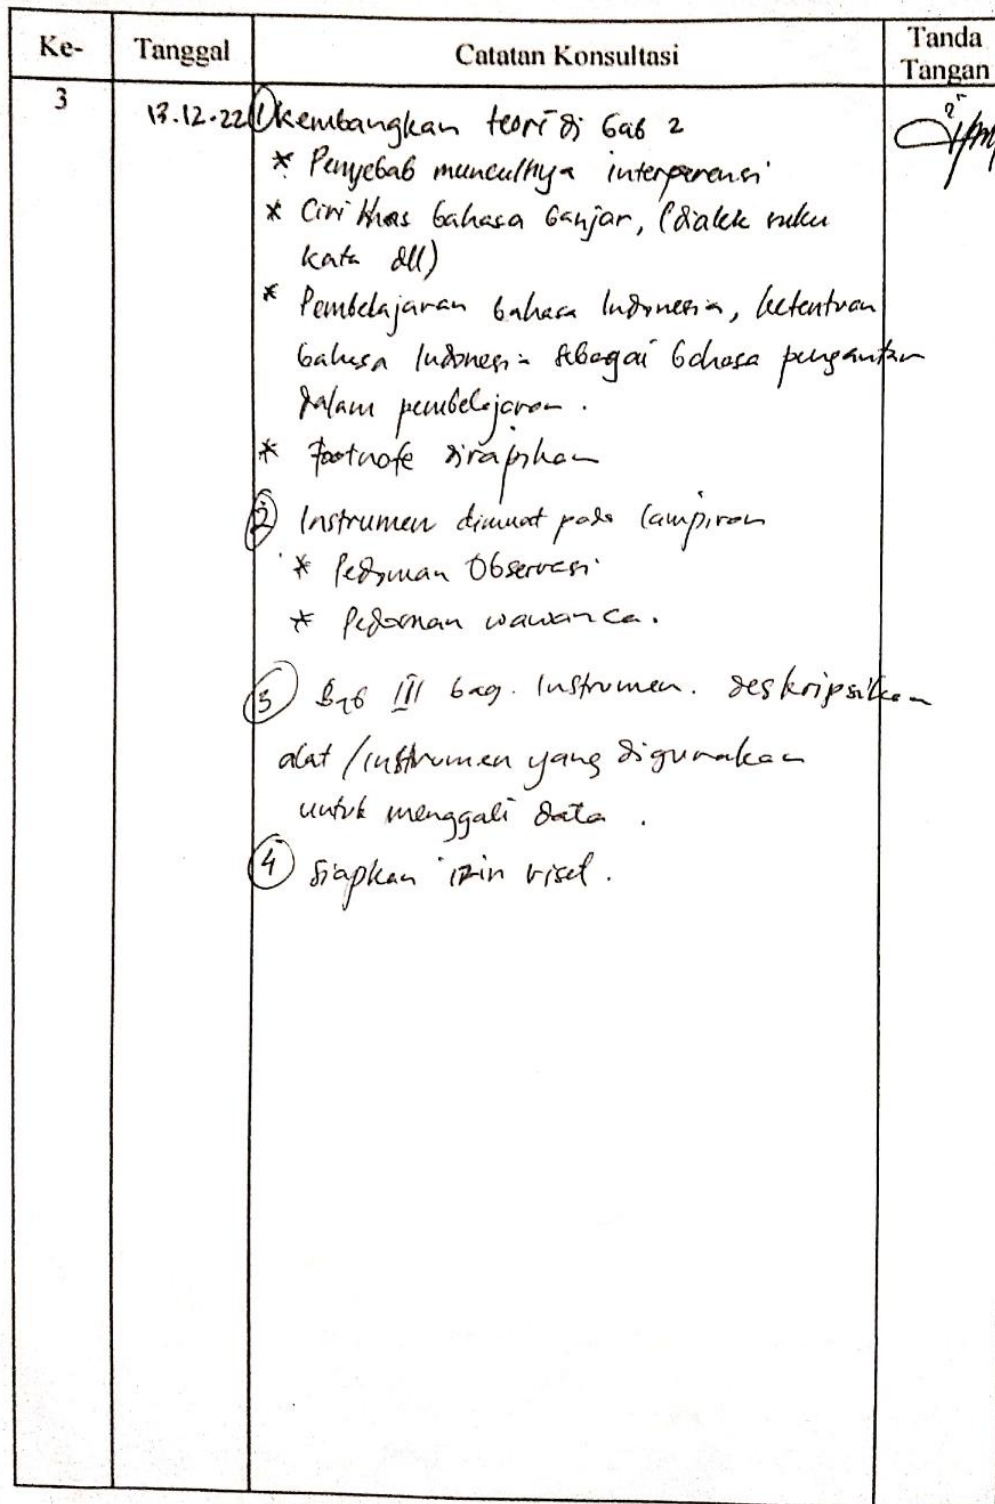 Ke- Tanggal Catatan Konsultasi Tanda Tangan
3 13.12.22 ① kembangkan teori di bab 2
* Penyebab munculnya interperensi
* Ciri khas bahasa banjar, (dialek suku
kata dll)
* Pembelajaran bahasa Indonesia, ketentuan
bahasa Indonesia sebagai bahasa pengantar
dalam pembelajaran.
* Footnote dirapikan
② Instrumen dimuat pada lampiran
* Pedoman Observasi
* Pedoman wawanca.
③ Bab III bag. Instrumen. deskripsikan
alat / instrumen yang digunakan
untuk menggali data.
④ Siapkan izin riset.